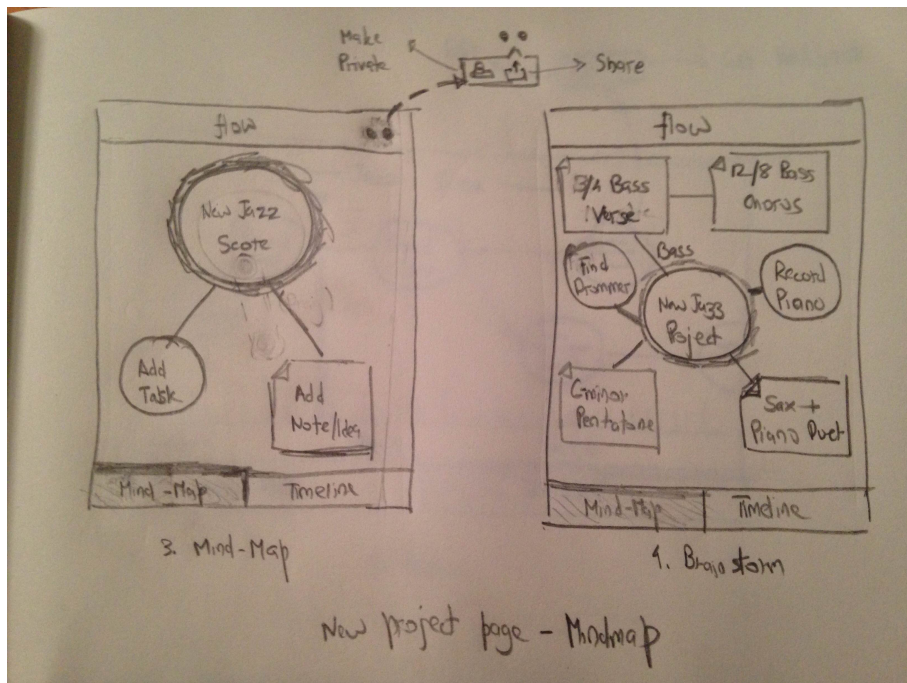 Make
Private
Share
flow
New Jazz
Score
Add
Task
Add
Note/Idea
Mind-Map
Timeline
3. Mind-Map
flow
3/4 Bass
Verse
12/8 Bass
Chorus
Bass
Find
Drommer
Record
Piano
New Jazz
Poject
Cminor
Pentatone
Sax +
Piano Duet
Mind-Map
Timeline
4. Brainstorm
New project page - Mindmap